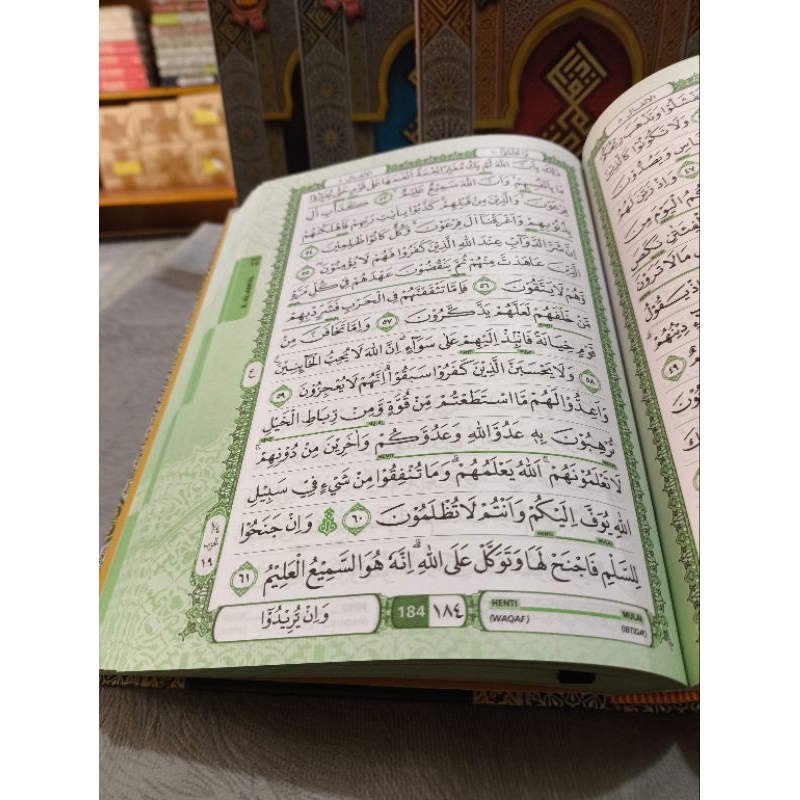 وَاعْلَمُوْٓا ١٠
الانفال ٨
ذٰلِكَ بِاَنَّ اللّٰهَ لَمْ يَكُ مُغَيِّرًا نِّعْمَةً اَنْعَمَهَا عَلٰى قَوْمٍ حَتّٰى يُغَيِّرُوْا
مَا بِاَنْفُسِهِمْۙ وَاَنَّ اللّٰهَ سَمِيْعٌ عَلِيْمٌۙ ٥٣ كَدَأْبِ اٰلِ
فِرْعَوْنَۙ وَالَّذِيْنَ مِنْ قَبْلِهِمْۚ كَذَّبُوْا بِاٰيٰتِ رَبِّهِمْ فَاَهْلَكْنٰهُمْ
بِذُنُوْبِهِمْ وَاَغْرَقْنَآ اٰلَ فِرْعَوْنَۚ وَكُلٌّ كَانُوْا ظٰلِمِيْنَ ٥٤
اِنَّ شَرَّ الدَّوَاۤبِّ عِنْدَ اللّٰهِ الَّذِيْنَ كَفَرُوْا فَهُمْ لَا يُؤْمِنُوْنَۖ ٥٥
اَلَّذِيْنَ عَاهَدْتَّ مِنْهُمْ ثُمَّ يَنْقُضُوْنَ عَهْدَهُمْ فِيْ كُلِّ مَرَّةٍ
وَّهُمْ لَا يَتَّقُوْنَ ٥٦ فَاِمَّا تَثْقَفَنَّهُمْ فِى الْحَرْبِ فَشَرِّدْ بِهِمْ
مَّنْ خَلْفَهُمْ لَعَلَّهُمْ يَذَّكَّرُوْنَ ٥٧ وَاِمَّا تَخَافَنَّ مِنْ
قَوْمٍ خِيَانَةً فَانْۢبِذْ اِلَيْهِمْ عَلٰى سَوَاۤءٍۗ اِنَّ اللّٰهَ لَا يُحِبُّ الْخَاۤىِٕنِيْنَ
٥٨ وَلَا يَحْسَبَنَّ الَّذِيْنَ كَفَرُوْا سَبَقُوْاۗ اِنَّهُمْ لَا يُعْجِزُوْنَ ٥٩
وَاَعِدُّوْا لَهُمْ مَّا اسْتَطَعْتُمْ مِّنْ قُوَّةٍ وَّمِنْ رِّبَاطِ الْخَيْلِ
تُرْهِبُوْنَ بِهٖ عَدُوَّ اللّٰهِ وَعَدُوَّكُمْ وَاٰخَرِيْنَ مِنْ دُوْنِهِمْۚ
لَا تَعْلَمُوْنَهُمْۚ اَللّٰهُ يَعْلَمُهُمْۗ وَمَا تُنْفِقُوْا مِنْ شَيْءٍ فِيْ سَبِيْلِ
اللّٰهِ يُوَفَّ اِلَيْكُمْ وَاَنْتُمْ لَا تُظْلَمُوْنَ ٦٠ وَاِنْ جَنَحُوْا
لِلسَّلْمِ فَاجْنَحْ لَهَا وَتَوَكَّلْ عَلَى اللّٰهِۗ اِنَّهٗ هُوَ السَّمِيْعُ الْعَلِيْمُ ٦١
وَاِنْ يُّرِيْدُوْٓا
184 ١٨٤
HENTI
(WAQAF)
MULAI
(IBTIDA)